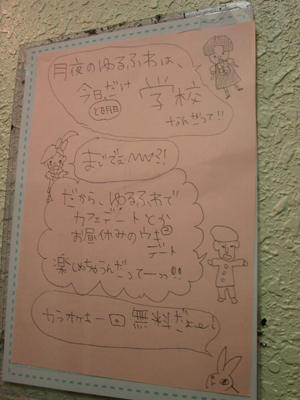 月夜のゆるふわは、
今日だけ
と明日
学校
なんだって!!
まじでぇ〰〰?!
だから、ゆるふわで
カフェデートとか
お昼休みのウキ②
デート
楽しめちゃうんだってーっ!!
カラオケも一回無料だよー